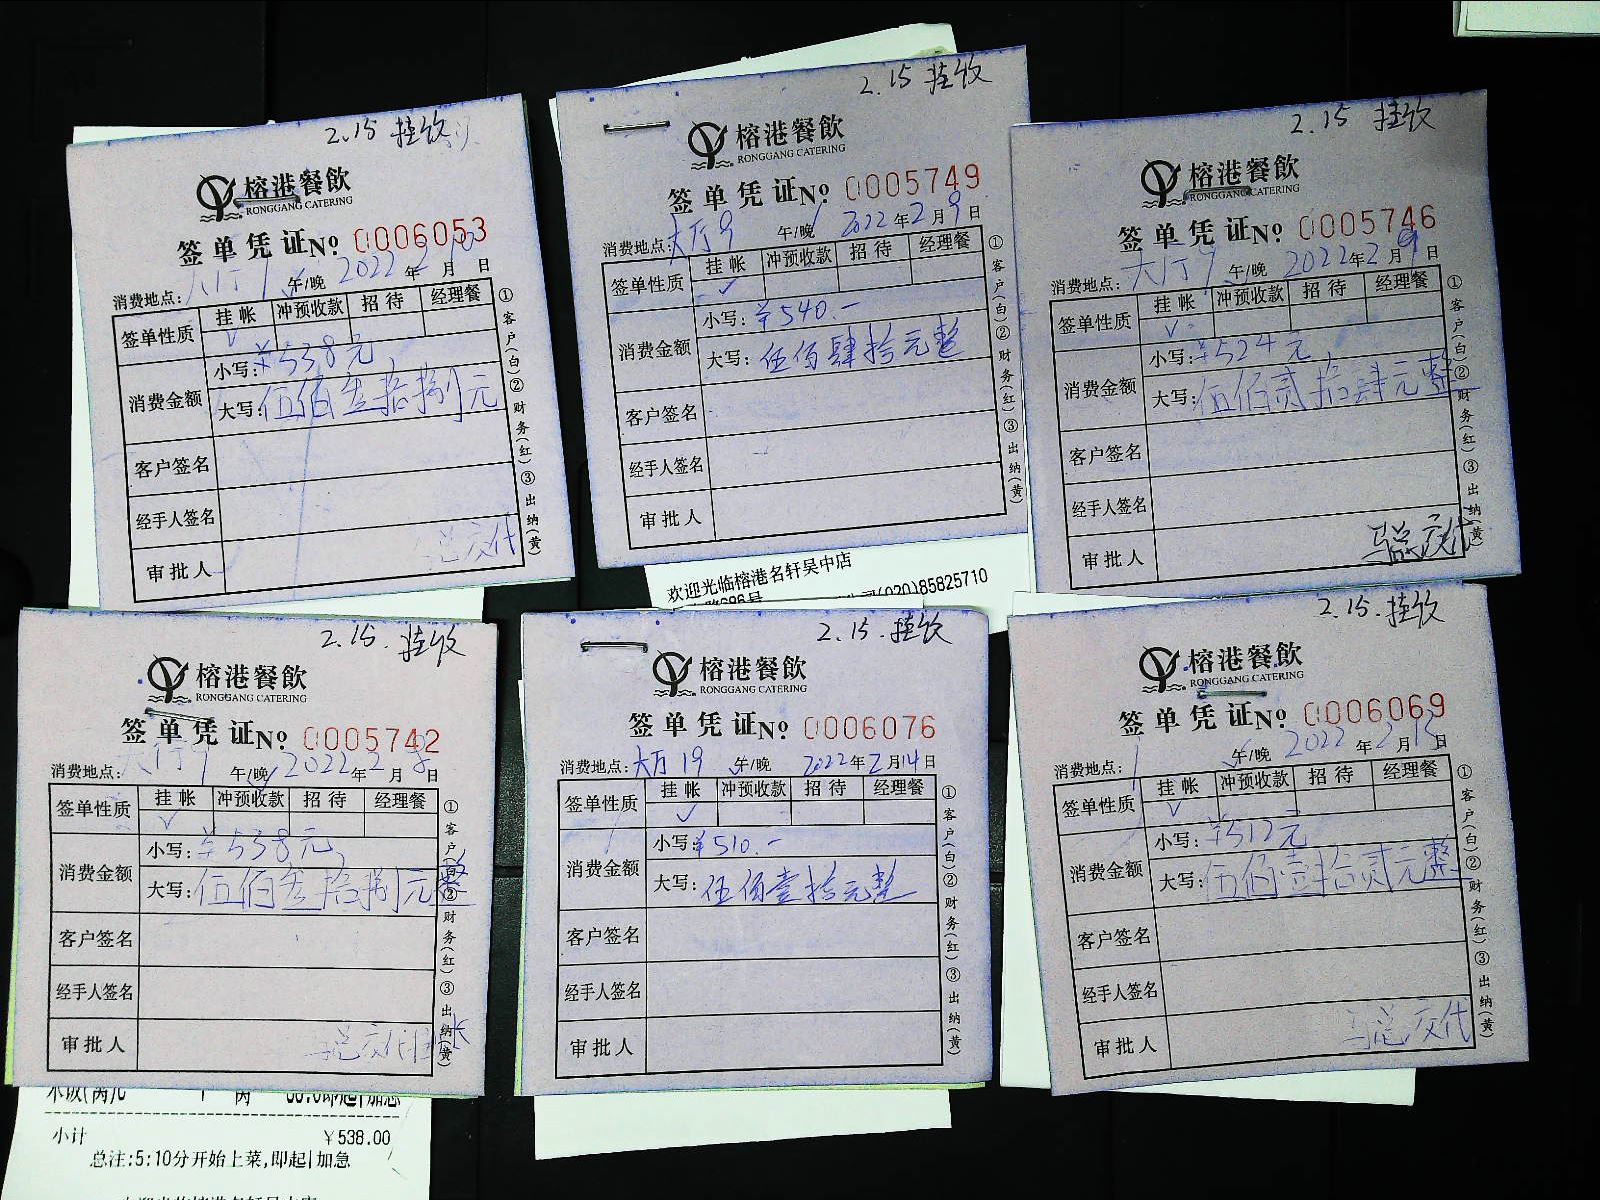 2.15 挂收
榕港餐飲
RONGGANG CATERING
签单凭证No. 0006053
消费地点: 大厅 午/晚 2022年2月10日
签单性质 挂帐 冲预收款 招待 经理餐
✓
消费金额 小写: ¥538元
大写: 伍佰叁拾捌元
客户签名
经手人签名
审批人 马总交代
①客户(白)②财务(红)③出纳(黄)
2.15 挂收
榕港餐飲
RONGGANG CATERING
签单凭证No. 0005749
消费地点: 大厅9 午/晚 2022年2月9日
签单性质 挂帐 冲预收款 招待 经理餐
✓
消费金额 小写: ¥540.-
大写: 伍佰肆拾元整
客户签名
经手人签名
审批人
①客户(白)②财务(红)③出纳(黄)
欢迎光临榕港名轩吴中店
(020)85825710
2.15 挂收
榕港餐飲
RONGGANG CATERING
签单凭证No. 0005746
消费地点: 大厅9 午/晚 2022年2月9日
签单性质 挂帐 冲预收款 招待 经理餐
✓
消费金额 小写: ¥524元
大写: 伍佰贰拾肆元整
客户签名
经手人签名
审批人 马总交代
①客户(白)②财务(红)③出纳(黄)
2.15.挂收
榕港餐飲
RONGGANG CATERING
签单凭证No. 0005742
消费地点: 大厅 午/晚 2022年2月8日
签单性质 挂帐 冲预收款 招待 经理餐
✓
消费金额 小写: ¥538元
大写: 伍佰叁拾捌元整
客户签名
经手人签名
审批人 马总交代挂帐
①客户(白)②财务(红)③出纳(黄)
小计 ¥538.00
总注:5:10分开始上菜,即起|加急
2.15.挂收
榕港餐飲
RONGGANG CATERING
签单凭证No. 0006076
消费地点: 大厅19 午/晚 2022年2月14日
签单性质 挂帐 冲预收款 招待 经理餐
✓
消费金额 小写: ¥510.-
大写: 伍佰壹拾元整
客户签名
经手人签名
审批人
①客户(白)②财务(红)③出纳(黄)
2.15.挂收
榕港餐飲
RONGGANG CATERING
签单凭证No. 0006069
消费地点: 午/晚 2022年2月日
签单性质 挂帐 冲预收款 招待 经理餐
✓
消费金额 小写: ¥512元
大写: 伍佰壹拾贰元整
客户签名
经手人签名
审批人 马总交代
①客户(白)②财务(红)③出纳(黄)